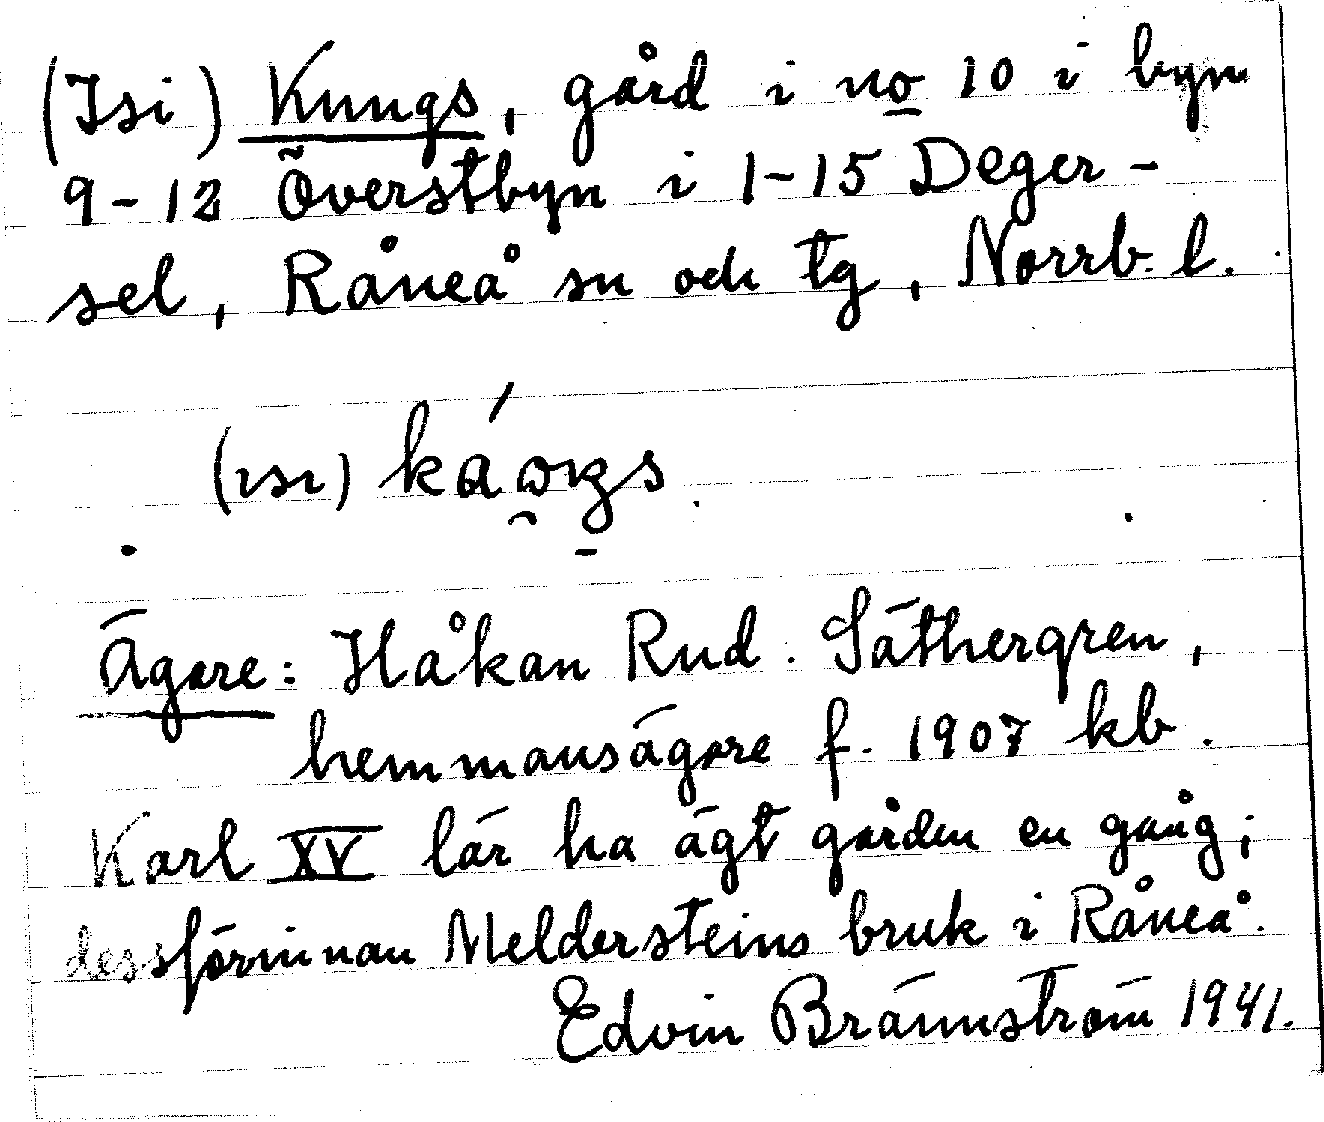 (Isi) Kungs, gård i no 10 i byn
9-12 Överstbyn i 1-15 Deger-
sel, Råneå sn och tg, Norrb. l.
(ısı)
Ägare: Håkan Rud. Säthergren,
hemmansägare f. 1907 kb.
Karl XV lär ha ägt gården en gång;
dessförinnan Meldersteins bruk i Råneå.
Edvin Brännström 1941.